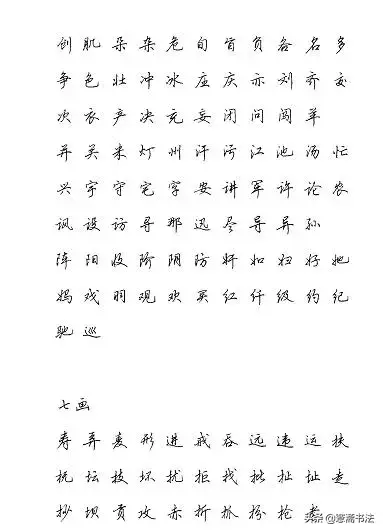 创 肌 朵 杂 危 旬 旨 负 各 名 多
争 色 壮 冲 冰 庄 庆 亦 刘 齐 交
次 衣 产 决 充 妄 闭 问 闯 羊
并 关 米 灯 州 汗 污 江 池 汤 忙
兴 宇 守 宅 字 安 讲 军 许 论 农
讽 设 访 寻 那 迅 尽 导 异 孙
阵 阳 收 阶 阴 防 奸 如 妇 好 她
妈 戏 羽 观 欢 买 红 纤 级 约 纪
驰 巡
七画
寿 弄 麦 形 进 戒 吞 远 违 运 扶
抚 坛 技 坏 扰 拒 找 批 扯 址 走
抄 坝 贡 攻 赤 折 抓 扮 抢 孝
头条 斋书法